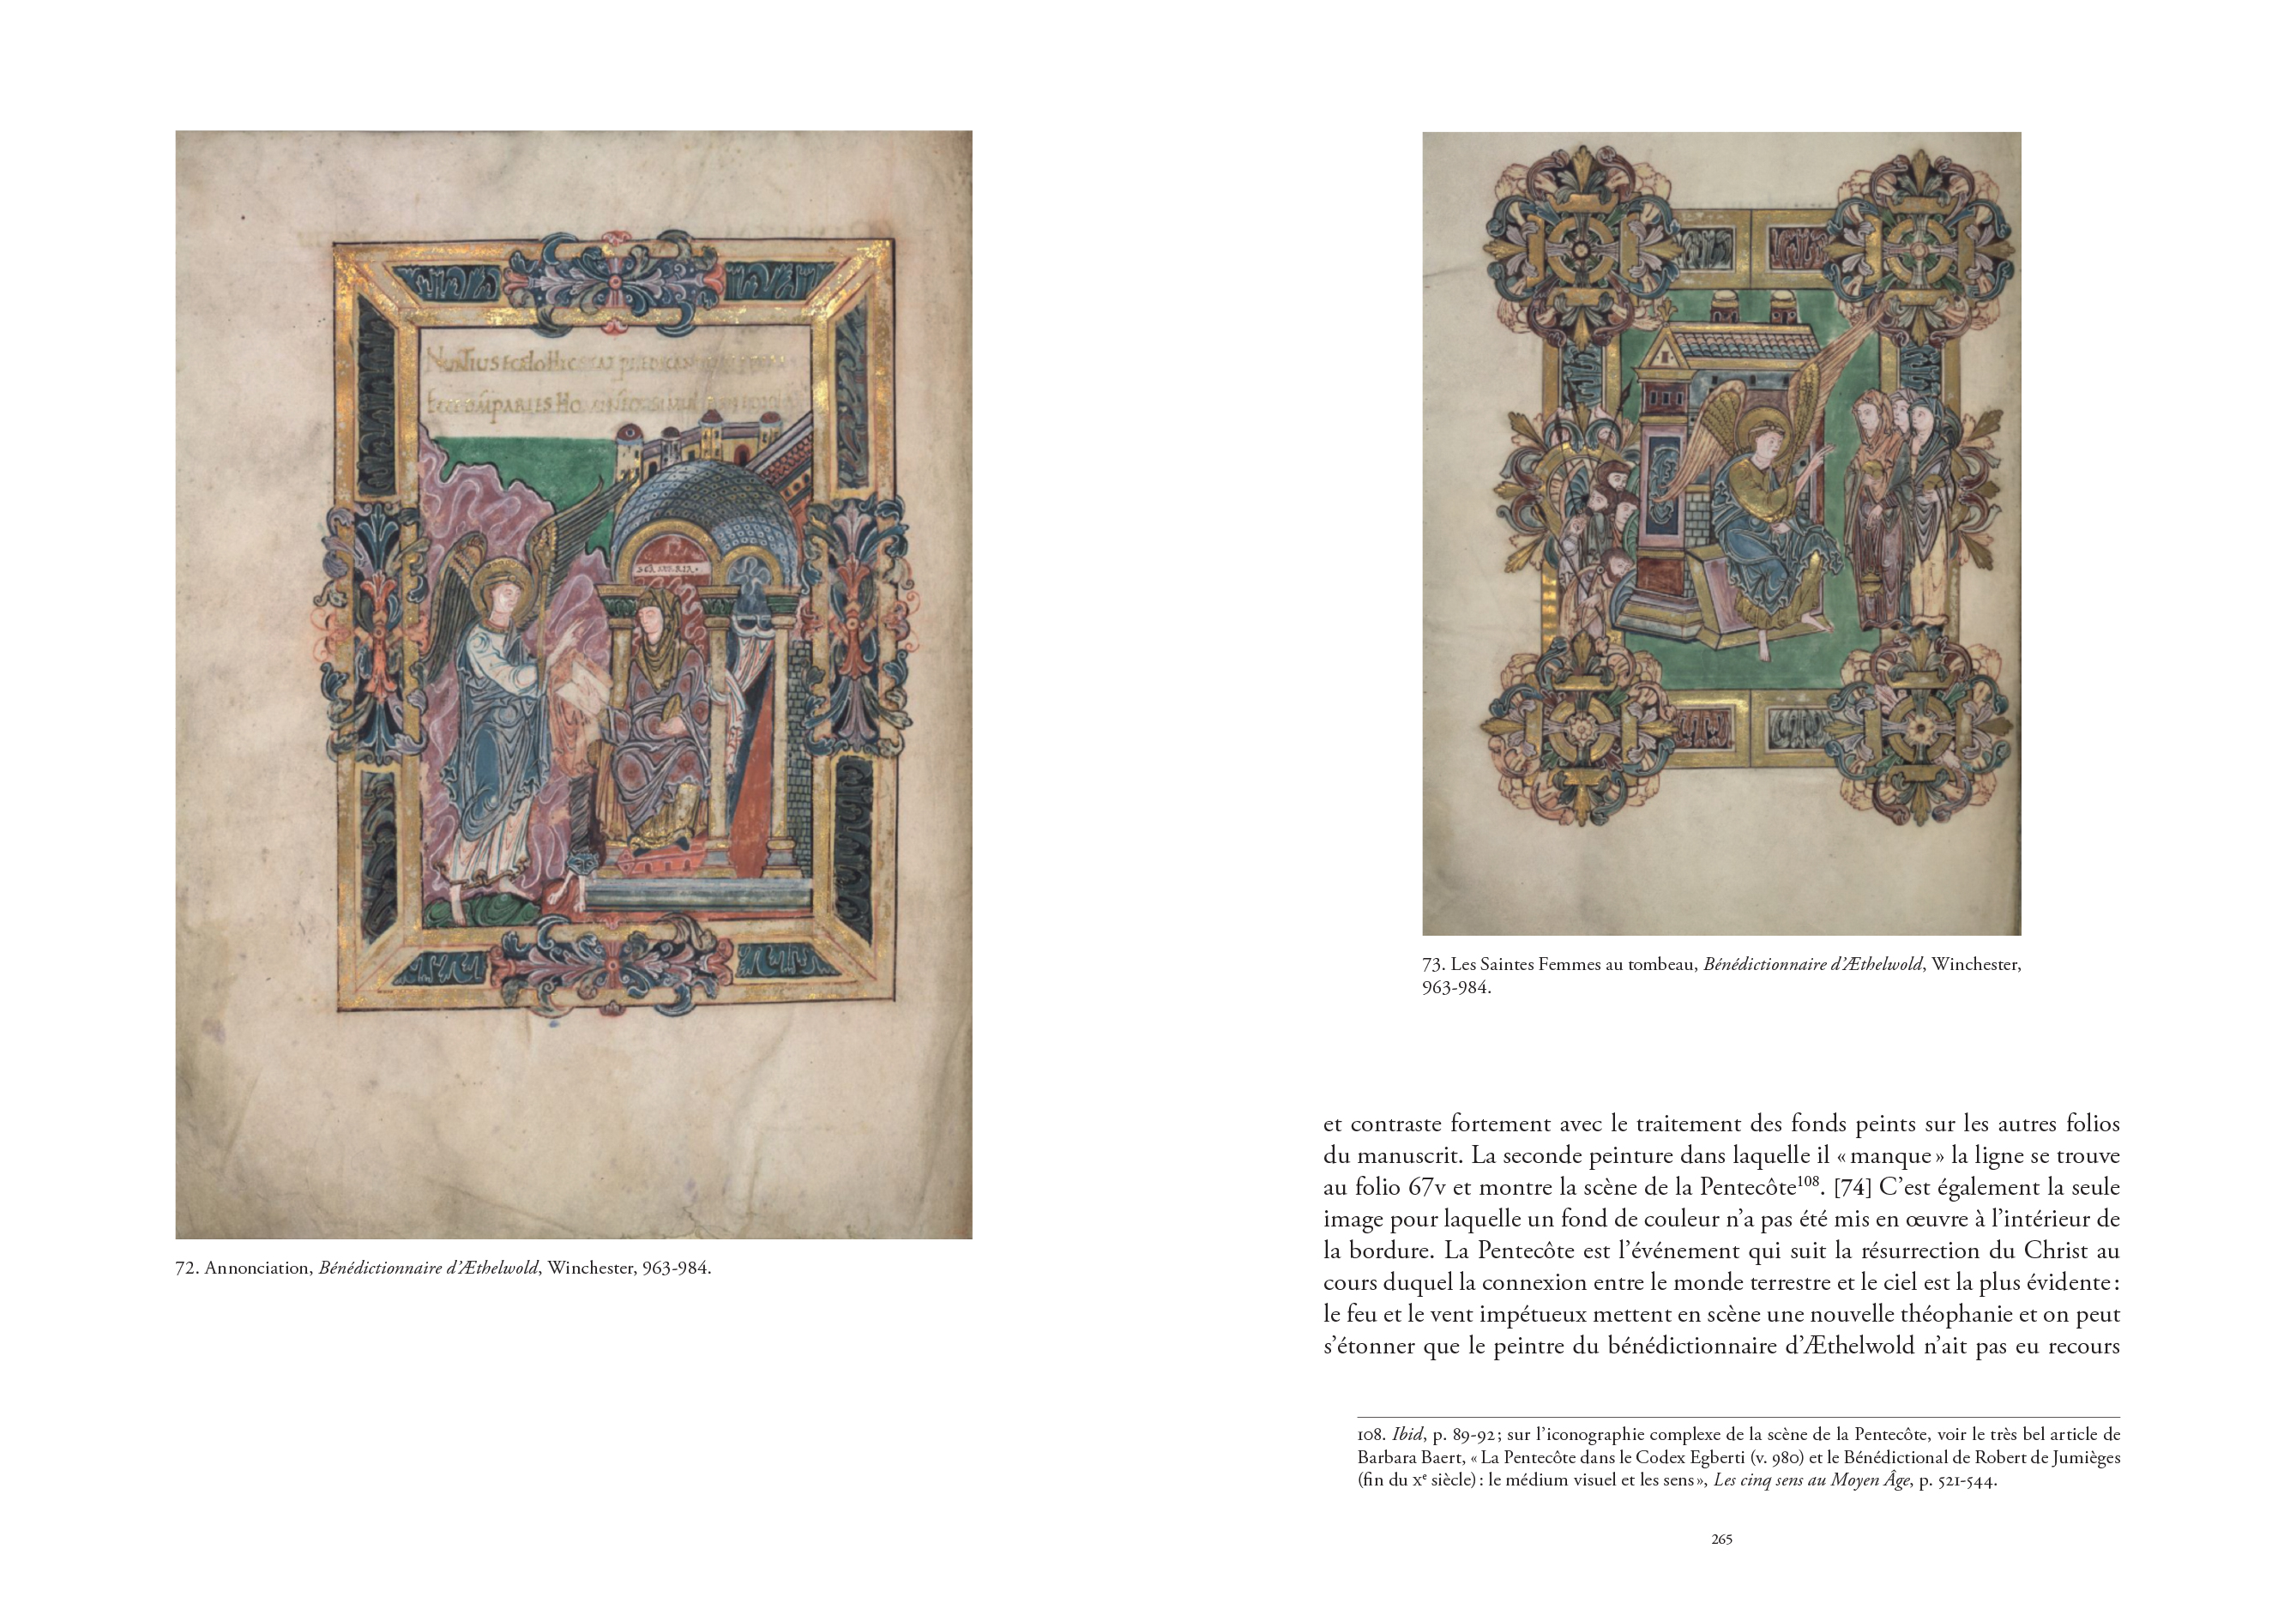 NUNTIUS E CAELO HIC STAT PREDICANDO
72. Annonciation, Bénédictionnaire d’Æthelwold, Winchester, 963-984.
73. Les Saintes Femmes au tombeau, Bénédictionnaire d’Æthelwold, Winchester,
963-984.
et contraste fortement avec le traitement des fonds peints sur les autres folios
du manuscrit. La seconde peinture dans laquelle il « manque » la ligne se trouve
au folio 67v et montre la scène de la Pentecôte108. [74] C’est également la seule
image pour laquelle un fond de couleur n’a pas été mis en œuvre à l’intérieur de
la bordure. La Pentecôte est l’événement qui suit la résurrection du Christ au
cours duquel la connexion entre le monde terrestre et le ciel est la plus évidente :
le feu et le vent impétueux mettent en scène une nouvelle théophanie et on peut
s’étonner que le peintre du bénédictionnaire d’Æthelwold n’ait pas eu recours
108. Ibid, p. 89-92 ; sur l’iconographie complexe de la scène de la Pentecôte, voir le très bel article de
Barbara Baert, « La Pentecôte dans le Codex Egberti (v. 980) et le Bénédictional de Robert de Jumièges
(fin du xe siècle) : le médium visuel et les sens », Les cinq sens au Moyen Âge, p. 521-544.
265